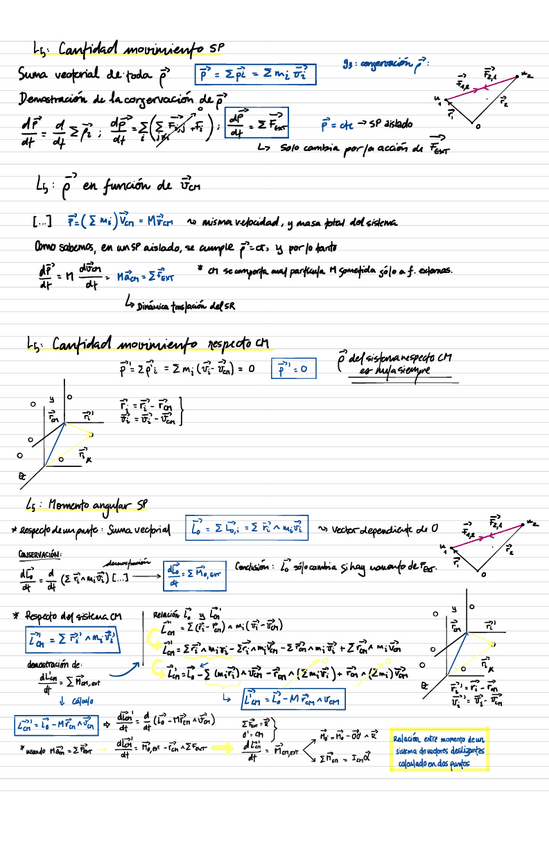 L5: Cantidad movimiento SP
Suma vectorial de toda p⃗   p⃗ = Σp⃗i = Σ mi v⃗i   g3: conservación p⃗:
Demostración de la conservación de p⃗
dp⃗/dt = d/dt Σ p⃗i ; dp⃗/dt = Σ ; dp⃗/dt = Σ F⃗EXT   p⃗ = cte → SP aislado
↳ Solo cambia por la acción de F⃗EXT
L5: p⃗ en función de v⃗CM
[...] p⃗ = (Σ mi) v⃗CM = M v⃗CM ~> misma velocidad, y masa total del sistema
Como sabemos, en un SP aislado, se cumple p⃗ = cte, y por lo tanto
dp⃗/dt = M dv⃗CM/dt = M a⃗CM = Σ F⃗EXT   * CM se comporta una partícula M sometida sólo a f. externas.
↳ Dinámica traslación del SR
L5: Cantidad movimiento respecto CM
p⃗' = Σ p⃗'i = Σ mi (v⃗i - v⃗CM) = 0   p⃗' = 0   p⃗ del sistema respecto CM
es nula siempre
r⃗i' = r⃗i - r⃗CM
v⃗i' = v⃗i - v⃗CM
L5: Momento angular SP
* Respecto de un punto: Suma vectorial   L⃗o = Σ L⃗o,i = Σ r⃗i ∧ mi v⃗i ~> vector dependiente de O
CONSERVACIÓN:
dL⃗o/dt = d/dt (Σ r⃗i ∧ mi v⃗i) [...] → dL⃗o/dt = Σ M⃗o,EXT   Conclusión: L⃗o sólo cambia si hay momento de FEXT.
* Respecto del sistema CM   Relación L⃗o y L⃗CM
L⃗CM' = Σ r⃗i' ∧ mi v⃗i'   L⃗CM' = Σ(r⃗i - r⃗CM) ∧ mi (v⃗i - v⃗CM)
L⃗CM' = Σ r⃗i ∧ mi v⃗i - Σ r⃗i ∧ mi v⃗CM - Σ r⃗CM ∧ mi v⃗i + Σ r⃗CM ∧ mi v⃗CM
demostración de:
dL⃗CM'/dt = Σ M⃗CM,EXT   L⃗CM' = L⃗o - Σ (mi r⃗i) ∧ v⃗CM - r⃗CM ∧ (Σ mi v⃗i) + r⃗CM ∧ (Σ mi) v⃗CM
↓ cálculo   ↳ L⃗CM' = L⃗o - M r⃗CM ∧ v⃗CM
r⃗i' = r⃗i - r⃗CM
v⃗i' = v⃗i - v⃗CM
L⃗CM' = L⃗o - M r⃗CM ∧ v⃗CM ⇒ dL⃗CM'/dt = d/dt (L⃗o - M r⃗CM ∧ v⃗CM)
O' = CM
* usando M a⃗CM = Σ F⃗EXT → dL⃗CM'/dt = M⃗o,EXT - r⃗CM ∧ Σ F⃗EXT ⇒ dL⃗CM'/dt = M⃗CM,EXT
Σ M⃗CM = ICM α⃗
Relación entre momento de un
sistema de vectores deslizantes
calculado en dos puntos